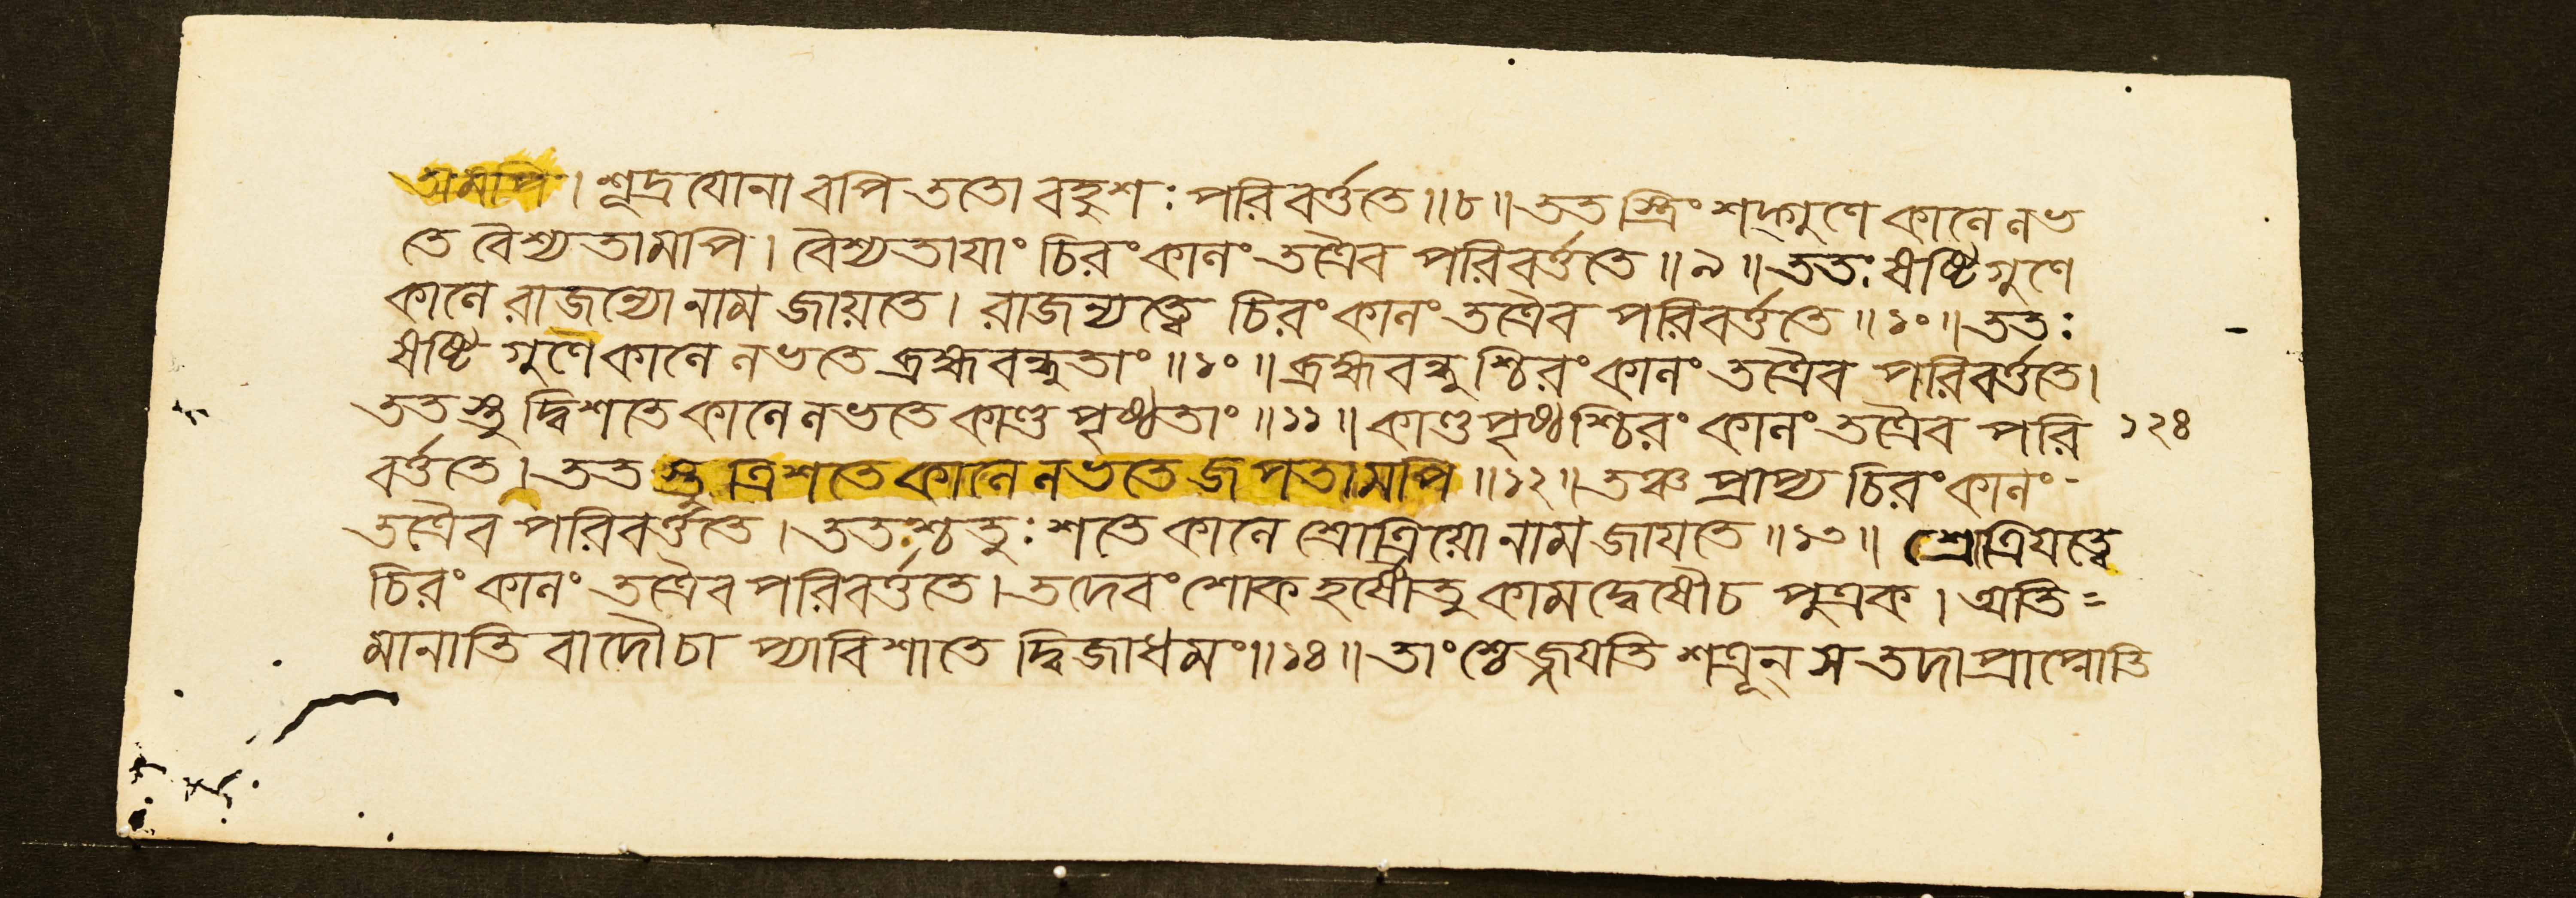 তামপি। শূদ্রযোনাবপি ততো বহুশঃ পরিবর্ত্ততে॥৮॥ ততস্ত্রিংশদ্গুণে কালে লভ
তে বৈশ্যতামপি। বৈশ্যতাযাং চিরং কালং তত্রৈব পরিবর্ত্ততে॥৯॥ ততঃ ষষ্টিগুণে
কালে রাজন্যো নাম জায়তে। রাজন্যত্বে চিরং কালং তত্রৈব পরিবর্ত্ততে॥১০॥ ততঃ
ষষ্টিগুণে কালে লভতে ব্রহ্মবন্ধুতাং॥১০॥ ব্রহ্মবন্ধুশ্চিরং কালং তত্রৈব পরিবর্ত্ততে।
ততস্তু দ্বিশতে কালে লভতে কাণ্ডপৃষ্ঠতাং॥১১॥ কাণ্ডপৃষ্ঠশ্চিরং কালং তত্রৈব পরি
১২৪
বর্ত্ততে। ততস্তু ত্রিশতে কালে লভতে জপতামপি॥১২॥ তঞ্চ প্রাপ্য চিরং কালং
তত্রৈব পরিবর্ত্ততে। ততশ্চতুঃশতে কালে শ্রোত্রিয়ো নাম জাযতে॥১৩॥ শ্রোত্রিযত্বে
চিরং কালং তত্রৈব পরিবর্ত্ততে। তদেবং শোকহর্ষৌ তু কামদ্বেষৌ চ পুত্রক। অতি=
মানাতিবাদৌ চাপ্যাবিশাতে দ্বিজাধমং॥১৪॥ তাংশ্চেজ্জযতি শত্রূন্ স তদা প্রাপ্নোতি